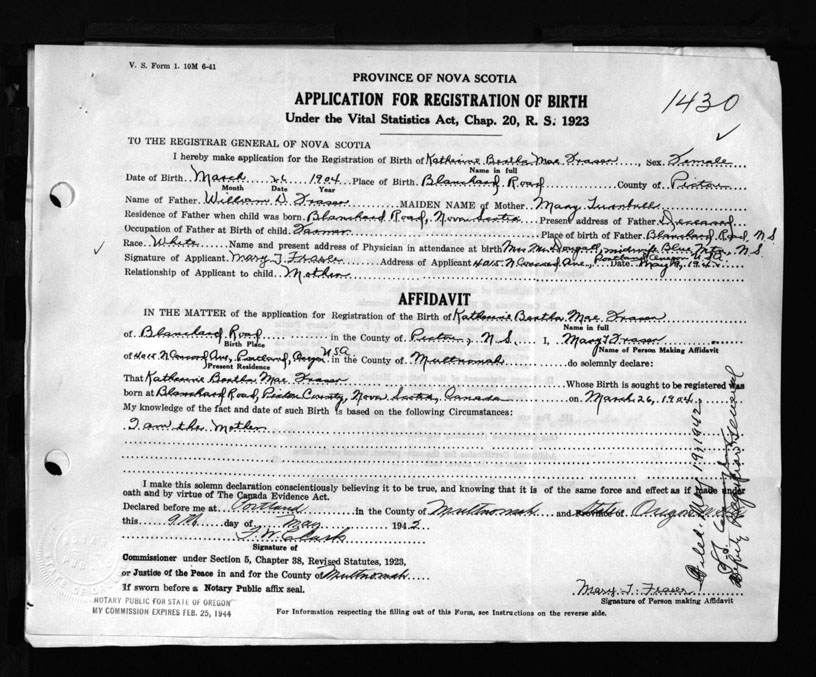 V. S. Form 1. 10M 6-41
PROVINCE OF NOVA SCOTIA
APPLICATION FOR REGISTRATION OF BIRTH
1430
Under the Vital Statistics Act, Chap. 20, R. S. 1923
TO THE REGISTRAR GENERAL OF NOVA SCOTIA
I hereby make application for the Registration of Birth of Katherine Bertha Mae Fraser, Sex Female
Name in full
Date of Birth March 26 1904 Place of Birth Blanchard Road County of Pictou
Month Date Year
Name of Father William D. Fraser MAIDEN NAME of Mother Mary Turnbull
Residence of Father when child was born Blanchard Road, Nova Scotia Present address of Father Deceased
Occupation of Father at Birth of child Farmer Place of birth of Father Blanchard Road N.S
Race White Name and present address of Physician in attendance at birth Mrs McDougall, midwife Blue Mtn N.S.
Signature of Applicant Mary T. Fraser Address of Applicant 4015 N Concord Ave, Portland Oregon U.S.A. Date May 9, 1942
Relationship of Applicant to child Mother
AFFIDAVIT
IN THE MATTER of the application for Registration of the Birth of Katherine Bertha Mae Fraser
Name in full
of Blanchard Road in the County of Pictou, N.S. I, Mary T Fraser
Birth Place Name of Person Making Affidavit
of 4015 N Concord Ave, Portland, Oregon USA in the County of Multnomah do solemnly declare:
Present Residence
That Katherine Bertha Mae Fraser Whose Birth is sought to be registered was
born at Blanchard Road, Pictou County, Nova Scotia, Canada on March 26, 1904
My knowledge of the fact and date of such Birth is based on the following Circumstances:
I am the Mother
I make this solemn declaration conscientiously believing it to be true, and knowing that it is of the same force and effect as if made under
oath and by virtue of The Canada Evidence Act.
Declared before me at Portland in the County of Multnomah and Province of State of Oregon
this 9th day of May 1942
F. W. Clark
Signature of
Commissioner under Section 5, Chapter 38, Revised Statutes, 1923,
or Justice of the Peace in and for the County of Multnomah
If sworn before a Notary Public affix seal.
Mary T. Fraser
Signature of Person making Affidavit
NOTARY PUBLIC FOR STATE OF OREGON
MY COMMISSION EXPIRES FEB. 25, 1944
For Information respecting the filling out of this Form, see Instructions on the reverse side.
Filed May 19, 1942
Deputy Registrar General